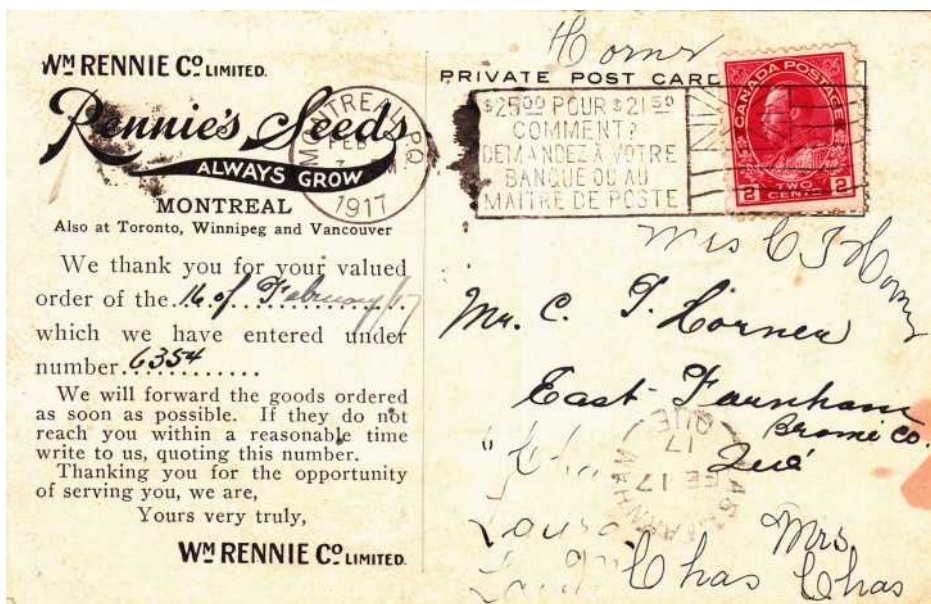 WM RENNIE CO LIMITED.
Rennie's Seeds
ALWAYS GROW
MONTREAL
Also at Toronto, Winnipeg and Vancouver
We thank you for your valued
order of the 16 of February/17
which we have entered under
number 6354
We will forward the goods ordered
as soon as possible. If they do not
reach you within a reasonable time
write to us, quoting this number.
Thanking you for the opportunity
of serving you, we are,
Yours very truly,
WM RENNIE CO LIMITED.
MONTREAL P.Q.
FEB
1917
PRIVATE POST CARD
$25.00 POUR $21.50
COMMENT?
DEMANDEZ À VOTRE
BANQUE OU AU
MAITRE DE POSTE
CANADA POSTAGE
2 TWO CENTS 2
Mrs C T
Mr. C. T. Horner
East Farnham
Brome Co.
Que
FE 17
17
QUE
Mrs
Chas Chas